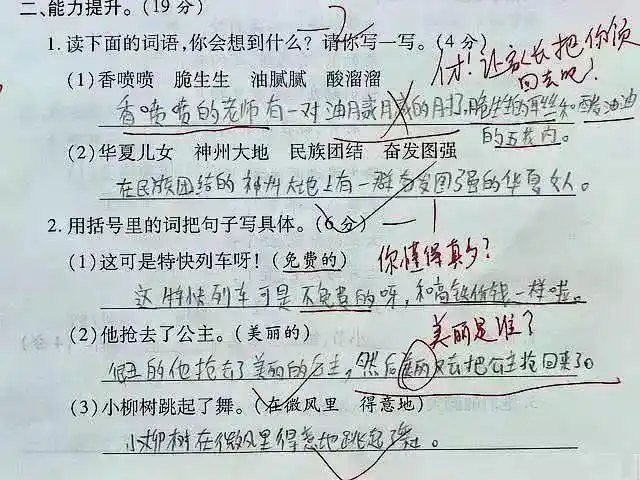 二、能力提升。(19分)
1.读下面的词语,你会想到什么?请你写一写。(4分)
(1)香喷喷 脆生生 油腻腻 酸溜溜
付!让家长把你领
回去吧!
香喷喷的老师有一对油月戎月戎的月才,脆生生的耳丝和酸油油
的五戈内。
(2)华夏儿女 神州大地 民族团结 奋发图强
在民族团结的神州大地上有一群奋发图强的华夏女人。
2.用括号里的词把句子写具体。(6分) —1
(1)这可是特快列车呀!(免费的)
你懂得真多?
这特快列车可是不免费的呀,和高铁价钱一样啦。
(2)他抢去了公主。(美丽的)
美丽是谁?
很丑的他抢去了美丽的公主,然后美丽又去把公主抢回来了。
(3)小柳树跳起了舞。(在微风里 得意地)
小柳树在微风里得意地跳起了舞。